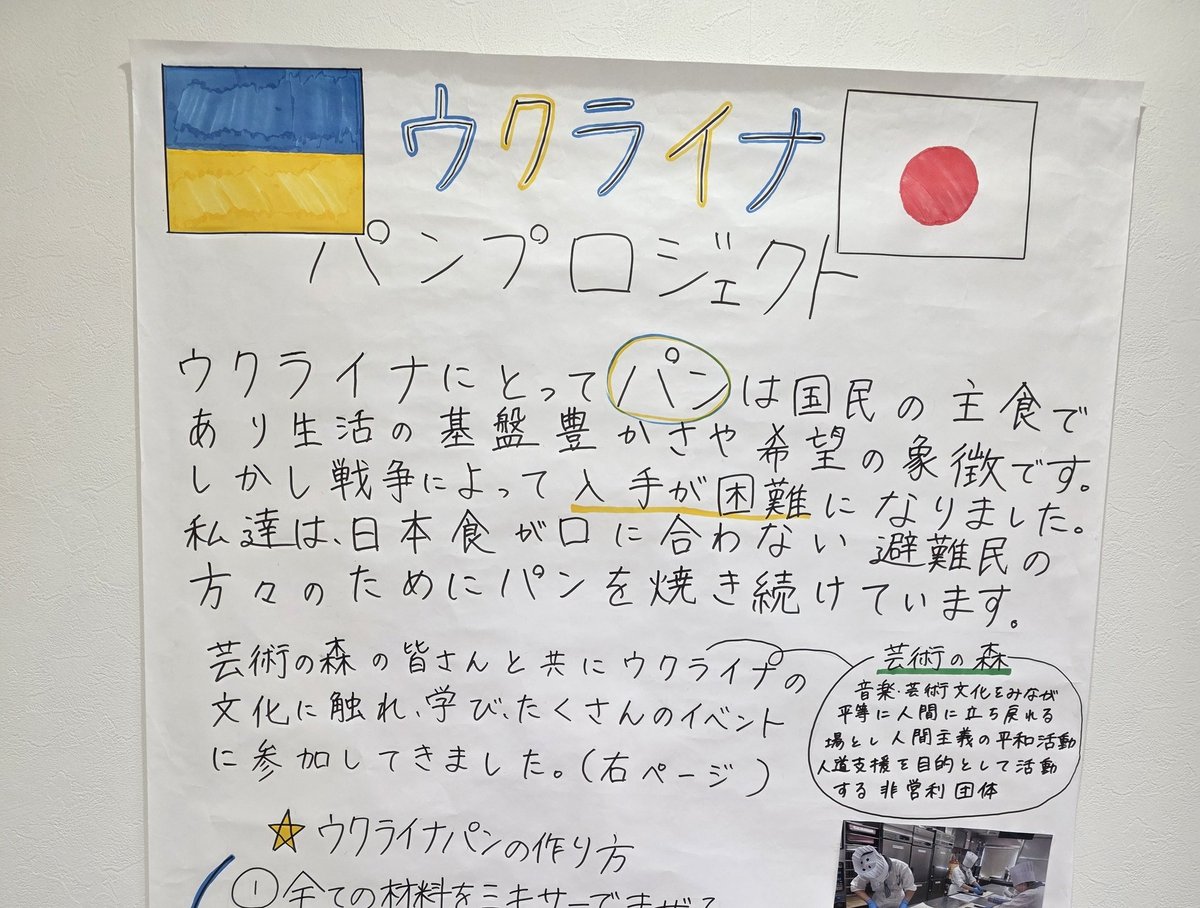 ウクライナ
パンプロジェクト
ウクライナにとってパンは国民の主食で
あり生活の基盤豊かさや希望の象徴です。
しかし戦争によって入手が困難になりました。
私達は、日本食が口に合わない避難民の
方々のためにパンを焼き続けています。
芸術の森の皆さんと共にウクライナの
文化に触れ、学び、たくさんのイベント
に参加してきました。(右ページ)
芸術の森
音楽・芸術文化をみなが
平等に人間に立ち戻れる
場とし人間主義の平和活動
人道支援を目的として活動
する非営利団体
☆ウクライナパンの作り方
①全ての材料をミキサーでまぜる